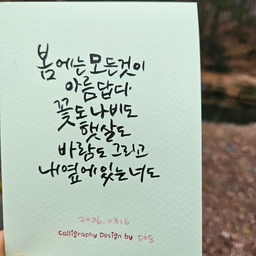 봄에는 모든것이
아름답다
꽃도 나비도
햇살도
바람도 그리고
내 옆에 있는 너도
2026.0316
Calligraphy Design by